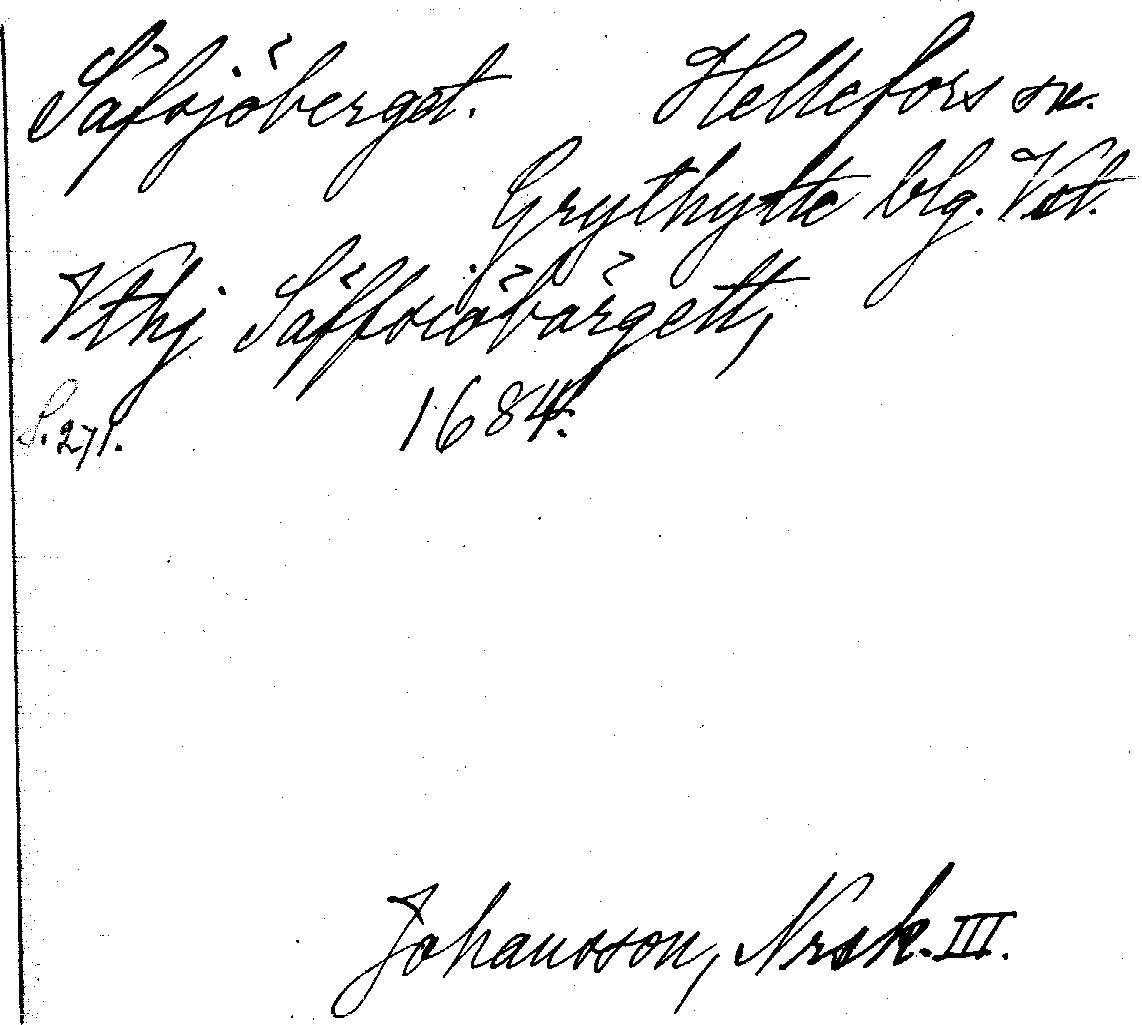 Säfsjöberget. Hellefors sn.
Grythytte blg. Vst.
Vthj Säffsiöbärgett,
S. 271. 1684.
Johansson, Nrsk. III.